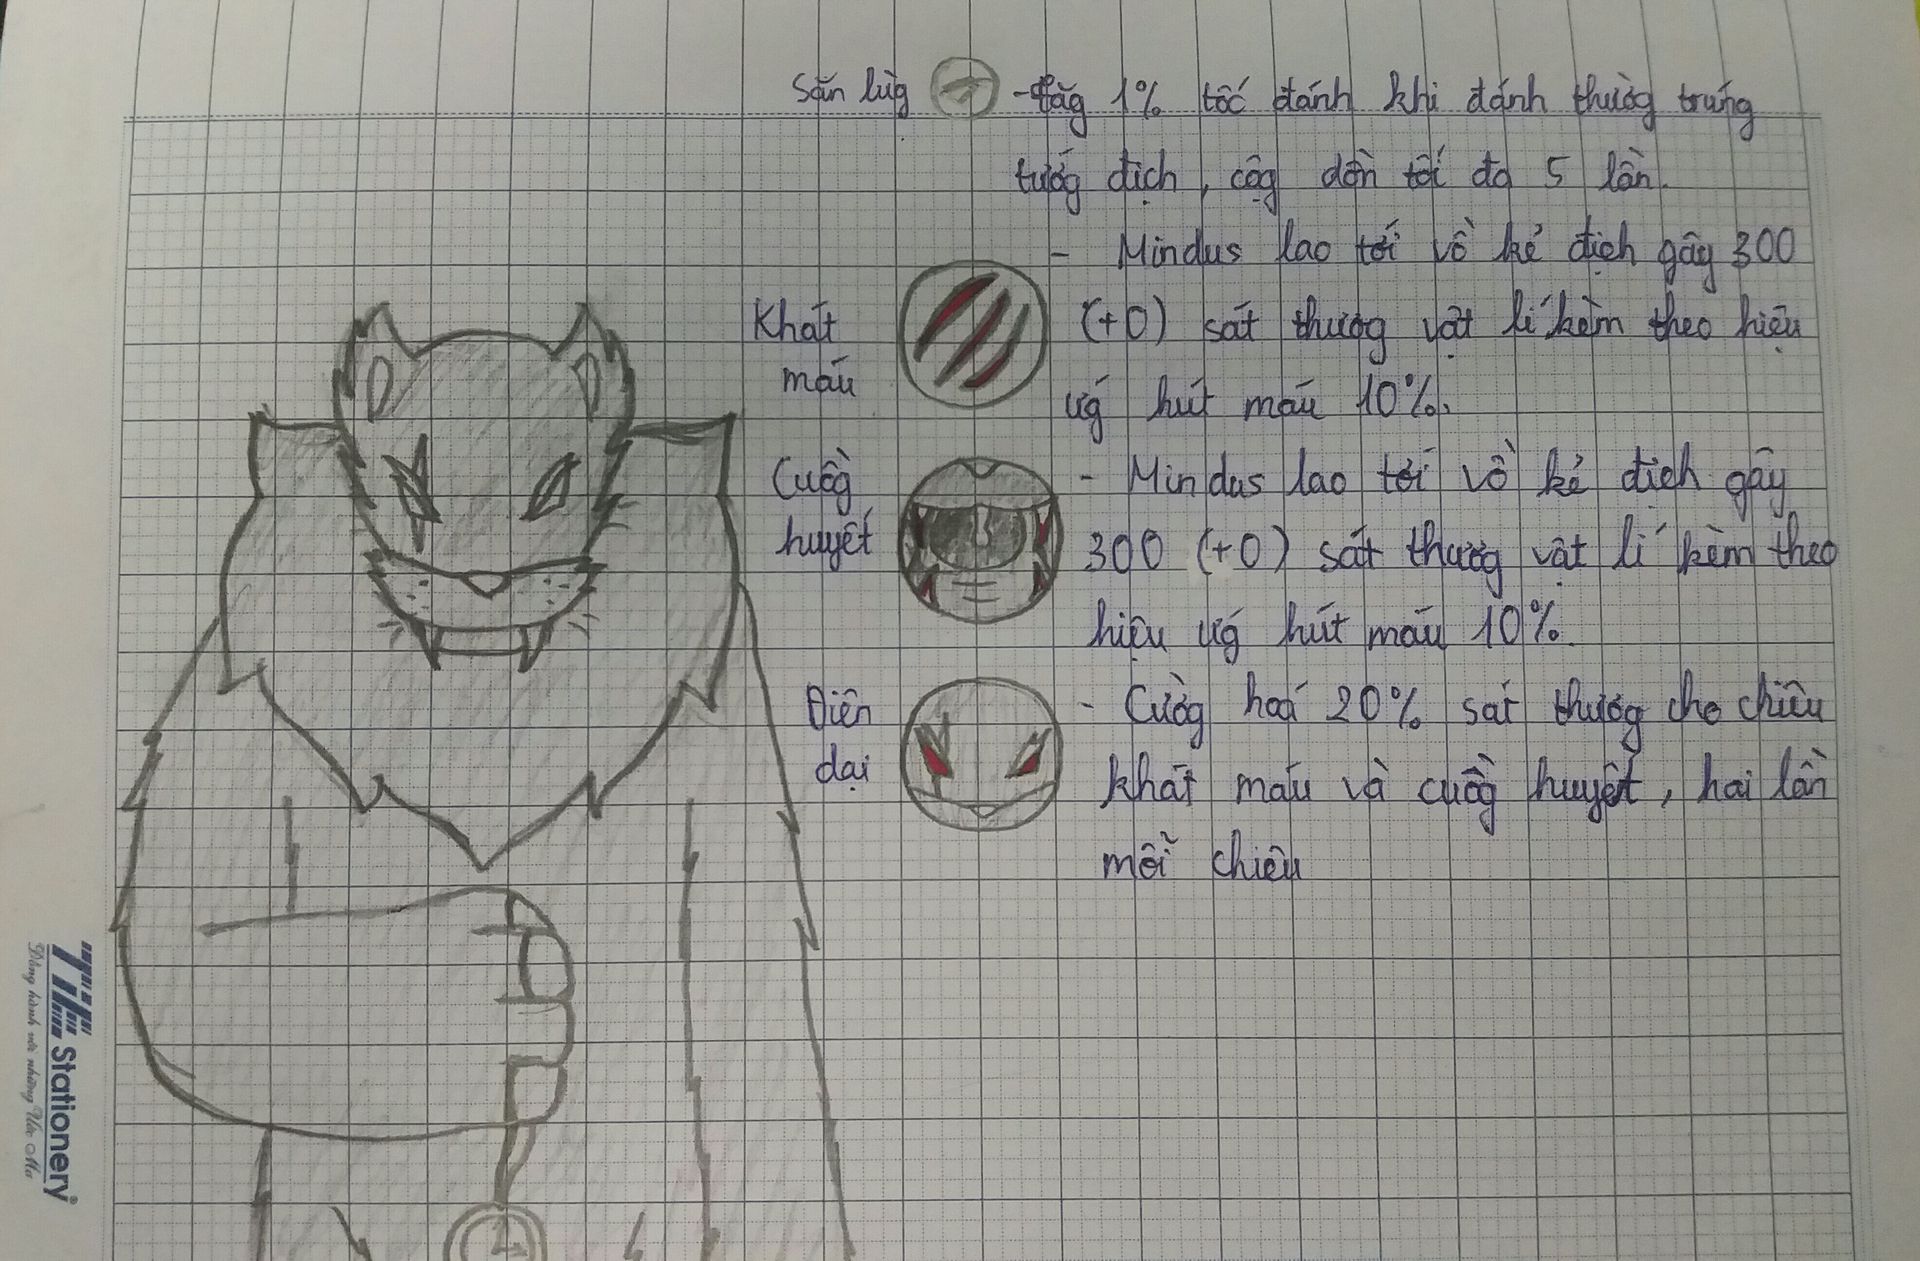 Săn lùg -tăg 1% tốc đánh khi đánh thườg trúg
tướg địch, cộg dồn tối đa 5 lần.
Khát
máu
- Mindus lao tới vồ kẻ địch gây 300
(+0) sát thươg vật lí kèm theo hiệu
ứg hút máu 10%.
Cuồg
huyết
- Mindus lao tới vồ kẻ địch gây
300 (+0) sát thươg vật lí kèm theo
hiệu ứg hút máu 10%.
Điên
dại
- Cườg hoá 20% sát thươg cho chiêu
khát máu và cuồg huyết, hai lần
mỗi chiêu
TK Stationery
Đồng hành với những Ước Mơ